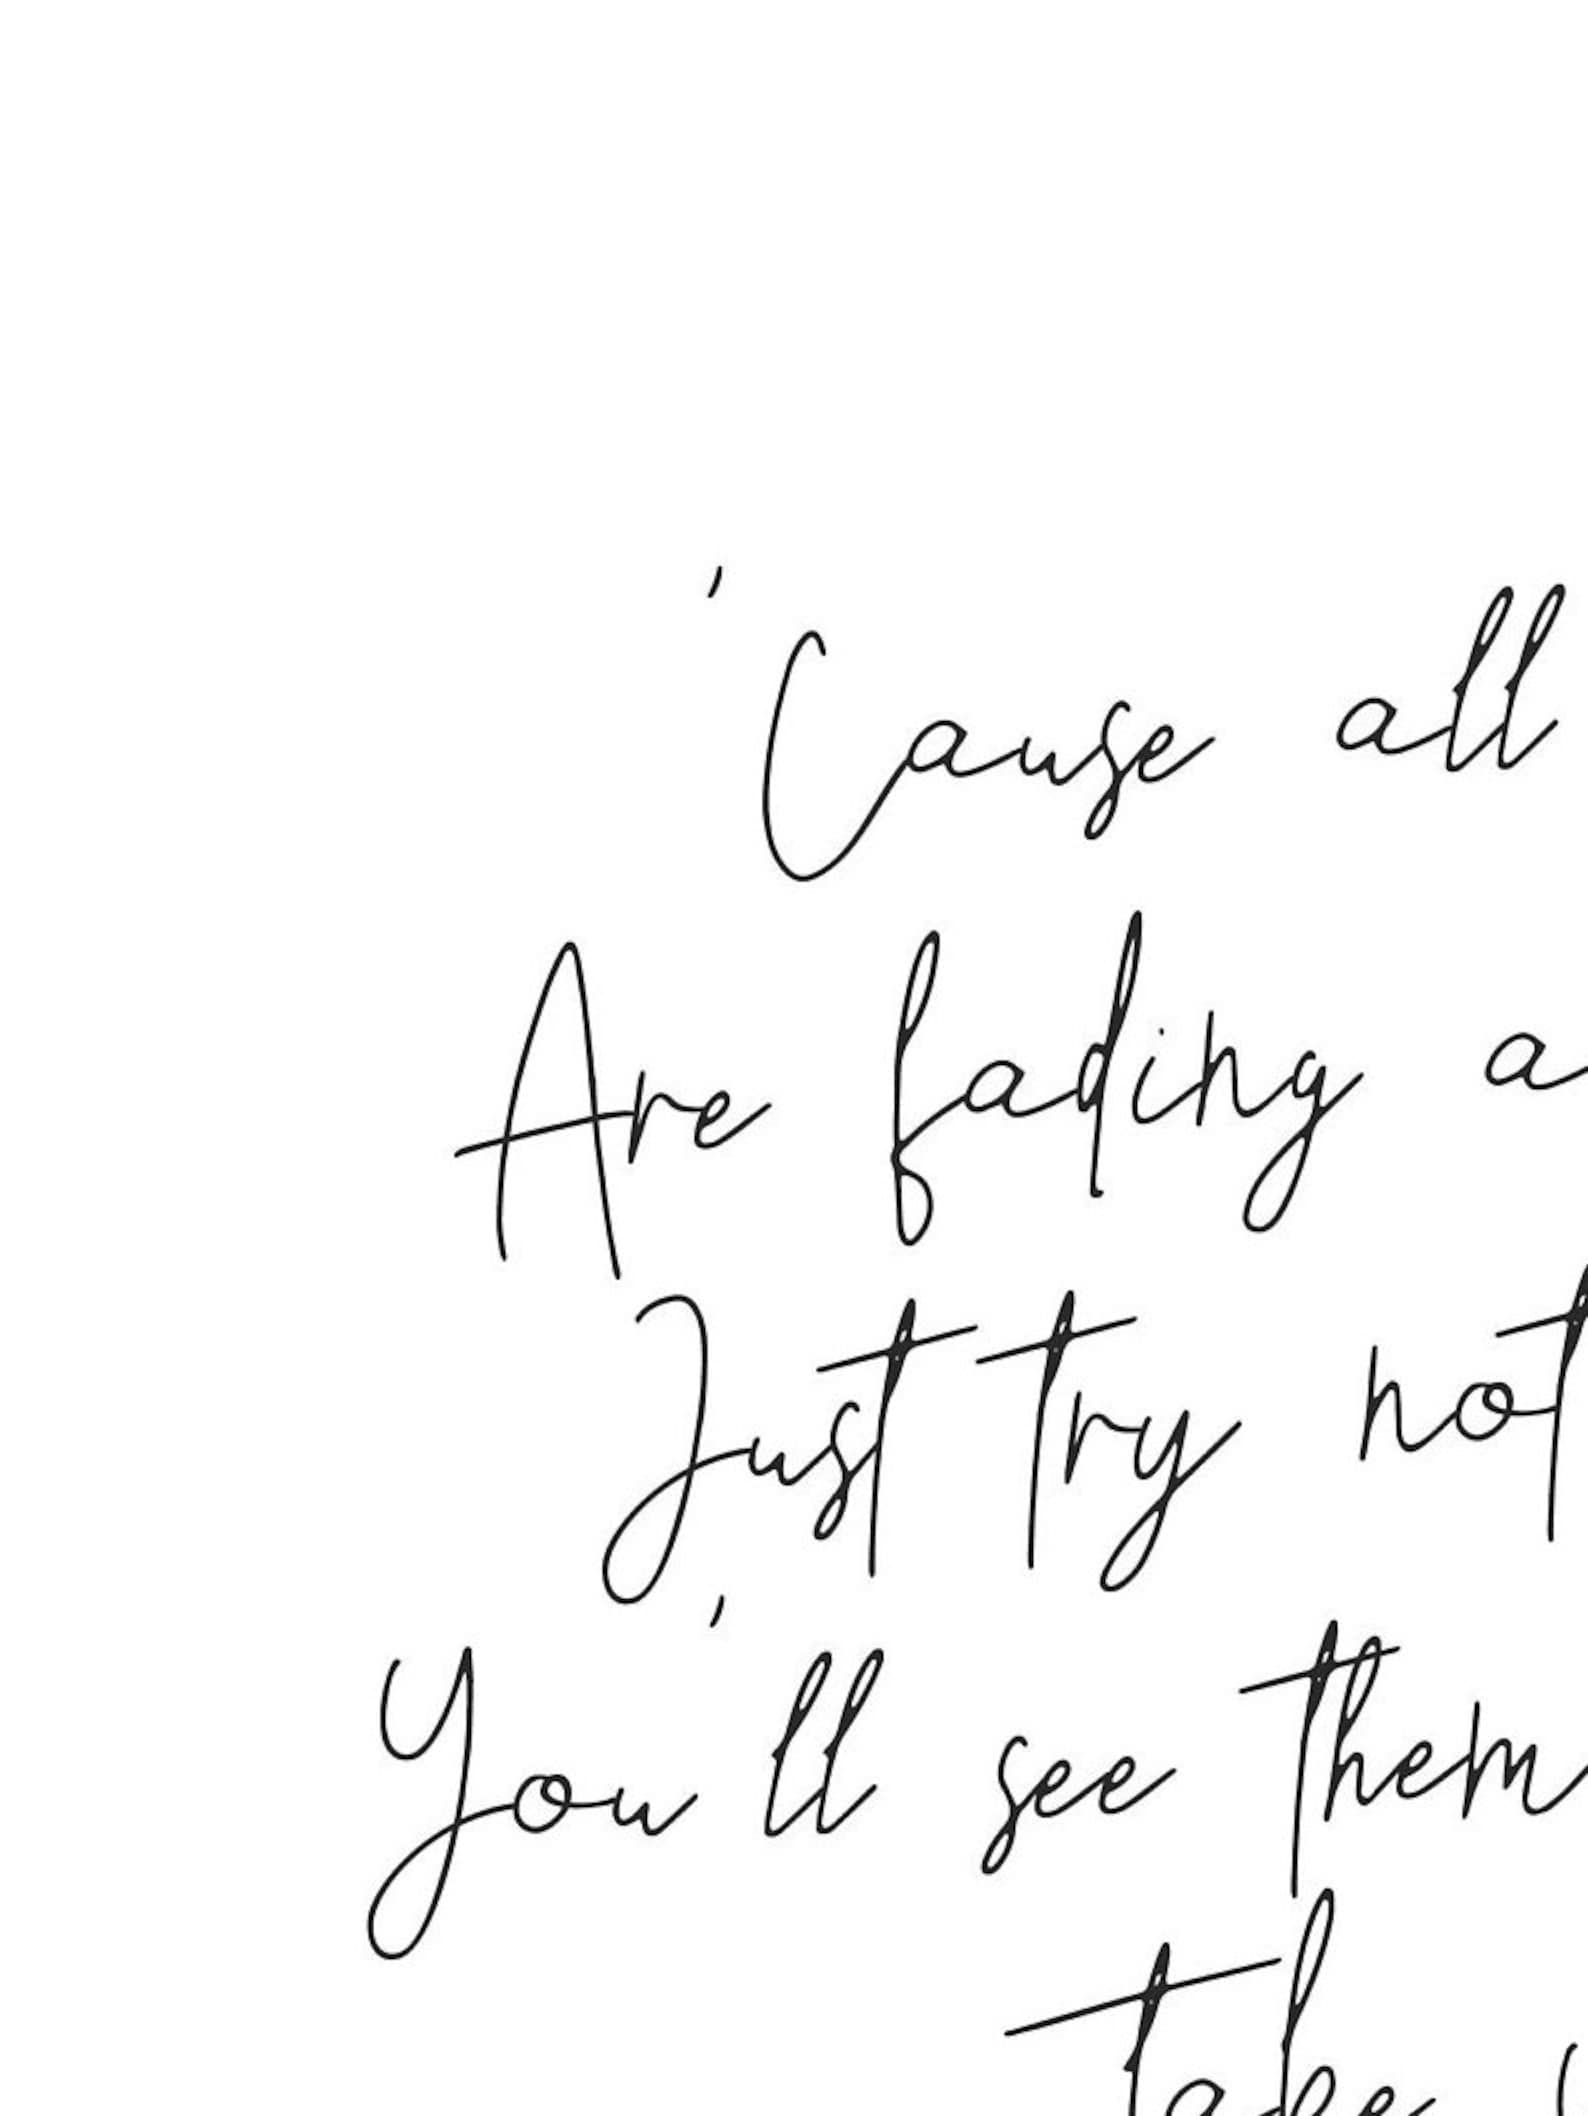 'Cause all
Are fading a
Just try not
You'll see them
Take